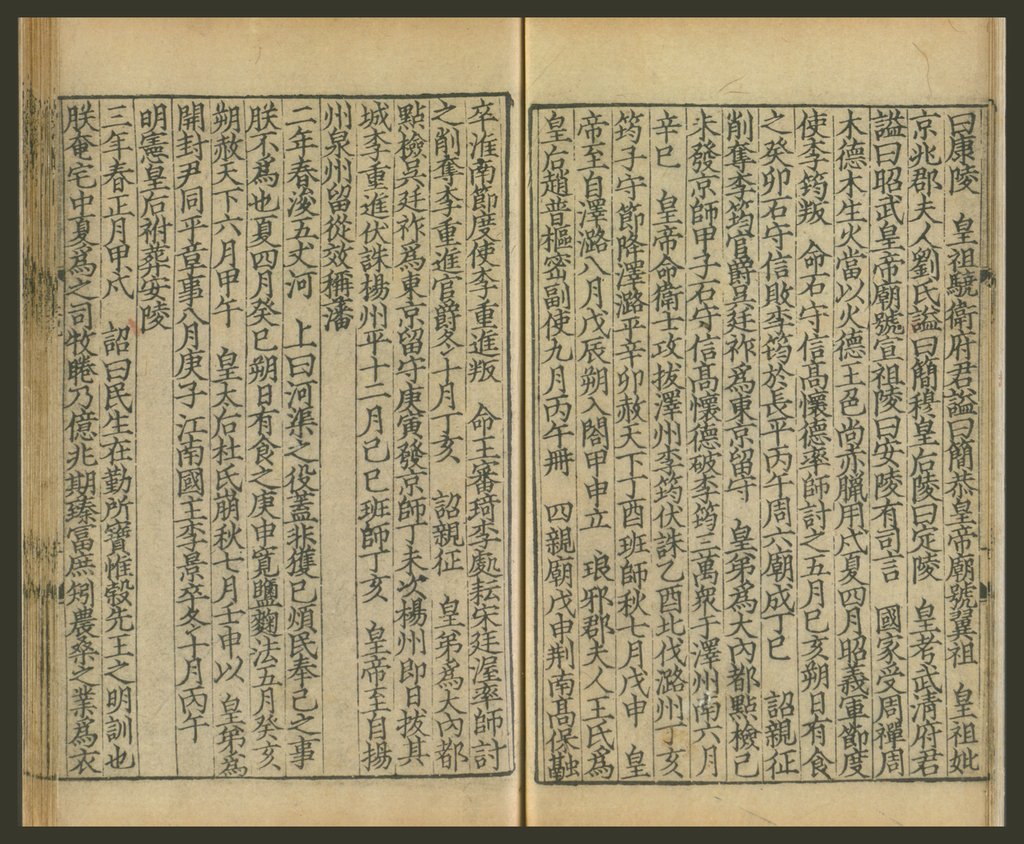 曰康陵　皇祖驍衛府君謚曰簡恭皇帝廟號翼祖　皇祖妣
京兆郡夫人劉氏謚曰簡穆皇后陵曰定陵　皇考武清府君
謚曰昭武皇帝廟號宣祖陵曰安陵有司言　國家受周禪周
木德木生火當以火德王色尚赤臘用戌夏四月昭義軍節度
使李筠叛　命石守信高懷德率師討之五月己亥朔日有食
之癸卯石守信敗李筠於長平丙午周六廟成丁巳　詔親征
削奪李筠官爵吳廷祚為東京留守　皇弟為大內都點檢己
未發京師甲子石守信高懷德破李筠三萬衆于澤州南六月
辛巳　皇帝命衛士攻拔澤州李筠伏誅乙酉北伐潞州丁亥
筠子守節降澤潞平辛卯赦天下丁酉班師秋七月戊申　皇
帝至自澤潞八月戊辰朔入閤甲申立　琅邪郡夫人王氏為
皇后趙普樞密副使九月丙午冊　四親廟戊申荆南高保融
卒淮南節度使李重進叛　命王審琦李處耘宋廷渥率師討
之削奪李重進官爵冬十月丁亥　詔親征　皇弟為大內都
點檢吳廷祚為東京留守庚寅發京師丁未次楊州即日拔其
城李重進伏誅楊州平十二月己巳班師丁亥　皇帝至自揚
州泉州留從效稱藩
二年春浚五丈河　上曰河渠之役蓋非獲已煩民奉己之事
朕不為也夏四月癸巳朔日有食之庚申寬鹽麴法五月癸亥
朔赦天下六月甲午　皇太后杜氏崩秋七月壬申以　皇弟為
開封尹同平章事八月庚子江南國主李景卒冬十月丙午
明憲皇后祔葬安陵
三年春正月甲戌　詔曰民生在勤所寶惟穀先王之明訓也
朕奄宅中夏為之司牧睠乃億兆期臻富庶矧農桑之業為衣